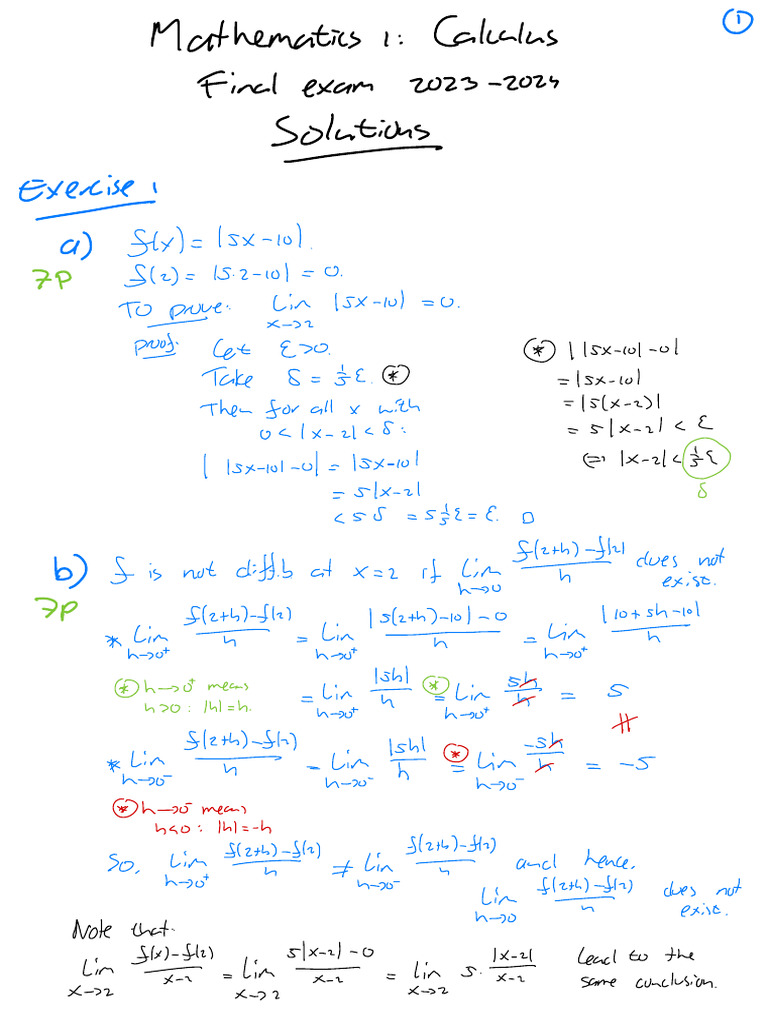 ①
Mathematics 1: Calculus
Final exam 2023-2024
Solutions
Exercise 1
a) f(x) = |5x-10|.
7p
f(2) = |5·2-10| = 0.
To prove: Lim_{x→2} |5x-10| = 0.
proof: Let ε>0.
Take δ = 1/5 ε. ⊛
Then for all x with
0<|x-2|<δ:
| |5x-10|-0| = |5x-10|
= 5|x-2|
< 5δ = 5 1/5 ε = ε. □
⊛ | |5x-10|-0|
= |5x-10|
= |5(x-2)|
= 5|x-2| < ε
⇔ |x-2| < 1/5 ε
δ
b) f is not diff.b at x=2 if Lim_{h→0} (f(2+h)-f(2))/h does not exist.
7p
* Lim_{h→0⁺} (f(2+h)-f(2))/h = Lim_{h→0⁺} (|5(2+h)-10|-0)/h = Lim_{h→0⁺} |10+5h-10|/h
⊛ h→0⁺ means
h>0: |h|=h.
= Lim_{h→0⁺} |5h|/h ⊛= Lim_{h→0⁺} 5h/h = 5
≠
* Lim_{h→0⁻} (f(2+h)-f(2))/h = Lim_{h→0⁻} |5h|/h ⊛= Lim_{h→0⁻} -5h/h = -5
⊛ h→0⁻ means
h<0: |h|=-h
So, Lim_{h→0⁺} (f(2+h)-f(2))/h ≠ Lim_{h→0⁻} (f(2+h)-f(2))/h and hence,
Lim_{h→0} (f(2+h)-f(2))/h does not exist.
Note that:
Lim_{x→2} (f(x)-f(2))/(x-2) = Lim_{x→2} (5|x-2|-0)/(x-2) = Lim_{x→2} 5·|x-2|/(x-2) Lead to the
same conclusion.